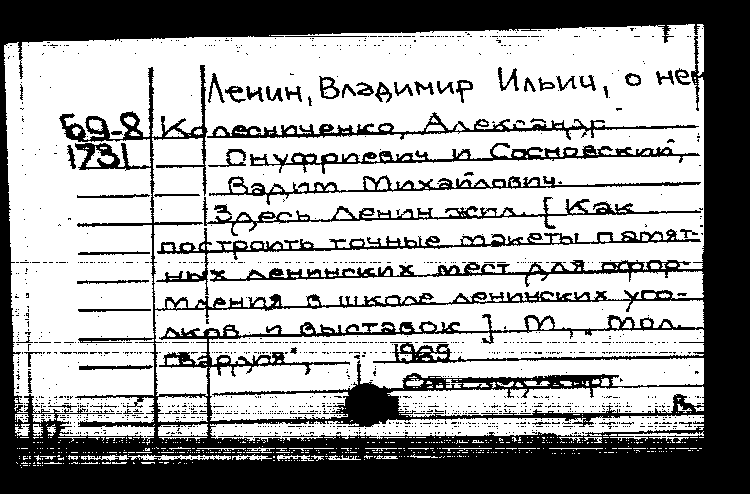 Ленин, Владимир Ильич, о нем
Б9-8 Колесниченко, Александр
1731 Онуфриевич и Сосновский,
Вадим Михайлович.
Здесь Ленин жил. [Как
построить точные макеты памят-
ных ленинских мест для офор-
мления в школе ленинских уго-
лков и выставок]. М., "Мол.
гвардия", 1969.
См. след. карт.